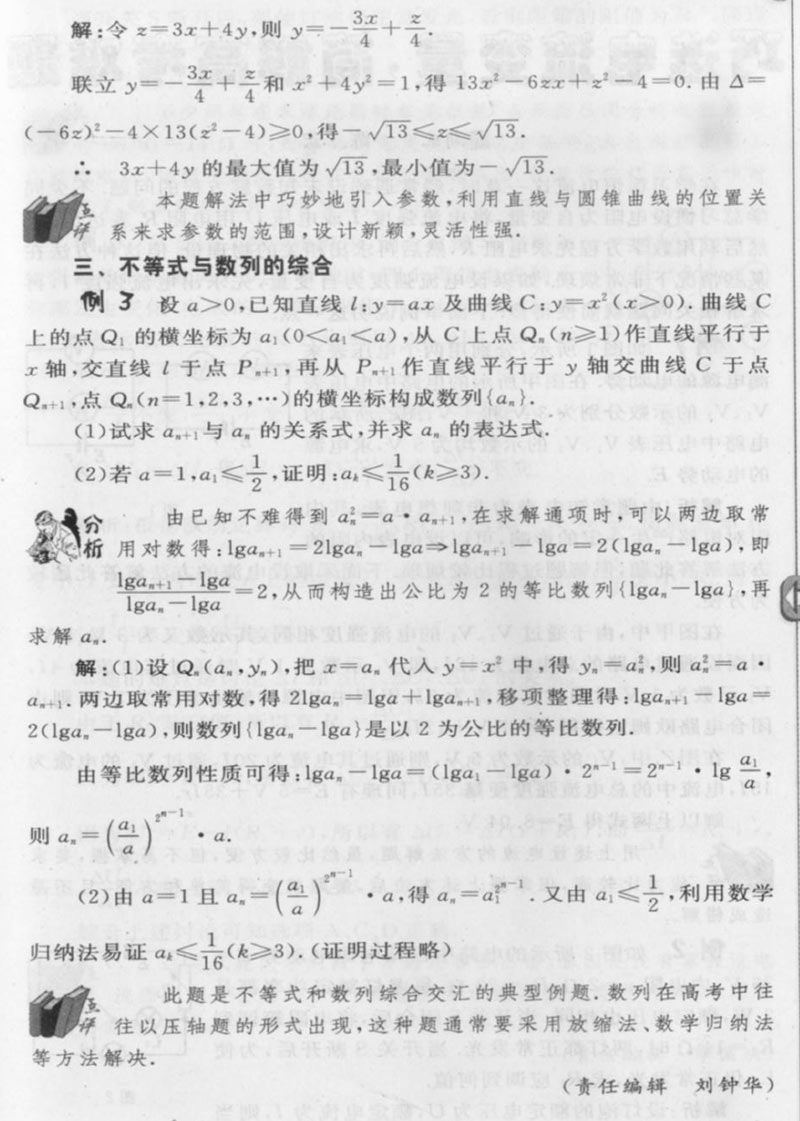 解:令 z=3x+4y,则 y=-\frac{3x}{4}+\frac{z}{4}.
联立 y=-\frac{3x}{4}+\frac{z}{4}和 x²+4y²=1,得 13x²-6zx+z²-4=0.由 Δ=
(-6z)²-4×13(z²-4)≥0,得-√13≤z≤√13.
∴ 3x+4y 的最大值为√13,最小值为-√13.
点评 本题解法中巧妙地引入参数,利用直线与圆锥曲线的位置关
系来求参数的范围,设计新颖,灵活性强.
三、不等式与数列的综合
例 3 设 a>0,已知直线 l:y=ax 及曲线 C:y=x²(x>0).曲线 C
上的点 Q₁ 的横坐标为 a₁(0<a₁<a),从 C 上点 Qₙ(n≥1)作直线平行于
x 轴,交直线 l 于点 Pₙ₊₁,再从 Pₙ₊₁作直线平行于 y 轴交曲线 C 于点
Qₙ₊₁,点 Qₙ(n=1,2,3,…)的横坐标构成数列{aₙ}.
(1)试求 aₙ₊₁与 aₙ 的关系式,并求 aₙ 的表达式.
(2)若 a=1,a₁≤\frac{1}{2},证明:aₖ≤\frac{1}{16}(k≥3).
分析 由已知不难得到 aₙ²=a·aₙ₊₁,在求解通项时,可以两边取常
用对数得:lgaₙ₊₁=2lgaₙ-lga⇒lgaₙ₊₁-lga=2(lgaₙ-lga),即
\frac{lgaₙ₊₁-lga}{lgaₙ-lga}=2,从而构造出公比为 2 的等比数列{lgaₙ-lga},再
求解 aₙ.
解:(1)设 Qₙ(aₙ,yₙ),把 x=aₙ 代入 y=x² 中,得 yₙ=aₙ²,则 aₙ²=a·
aₙ₊₁.两边取常用对数,得 2lgaₙ=lga+lgaₙ₊₁,移项整理得:lgaₙ₊₁-lga=
2(lgaₙ-lga),则数列{lgaₙ-lga}是以 2 为公比的等比数列.
由等比数列性质可得:lgaₙ-lga=(lga₁-lga)·2ⁿ⁻¹=2ⁿ⁻¹·lg \frac{a₁}{a},
则 aₙ=(\frac{a₁}{a})^{2ⁿ⁻¹}·a.
(2)由 a=1 且 aₙ=(\frac{a₁}{a})^{2ⁿ⁻¹}·a,得 aₙ=a₁^{2ⁿ⁻¹}.又由 a₁≤\frac{1}{2},利用数学
归纳法易证 aₖ≤\frac{1}{16}(k≥3).(证明过程略)
点评 此题是不等式和数列综合交汇的典型例题.数列在高考中往
往以压轴题的形式出现,这种题通常要采用放缩法、数学归纳法
等方法解决.
(责任编辑 刘钟华)